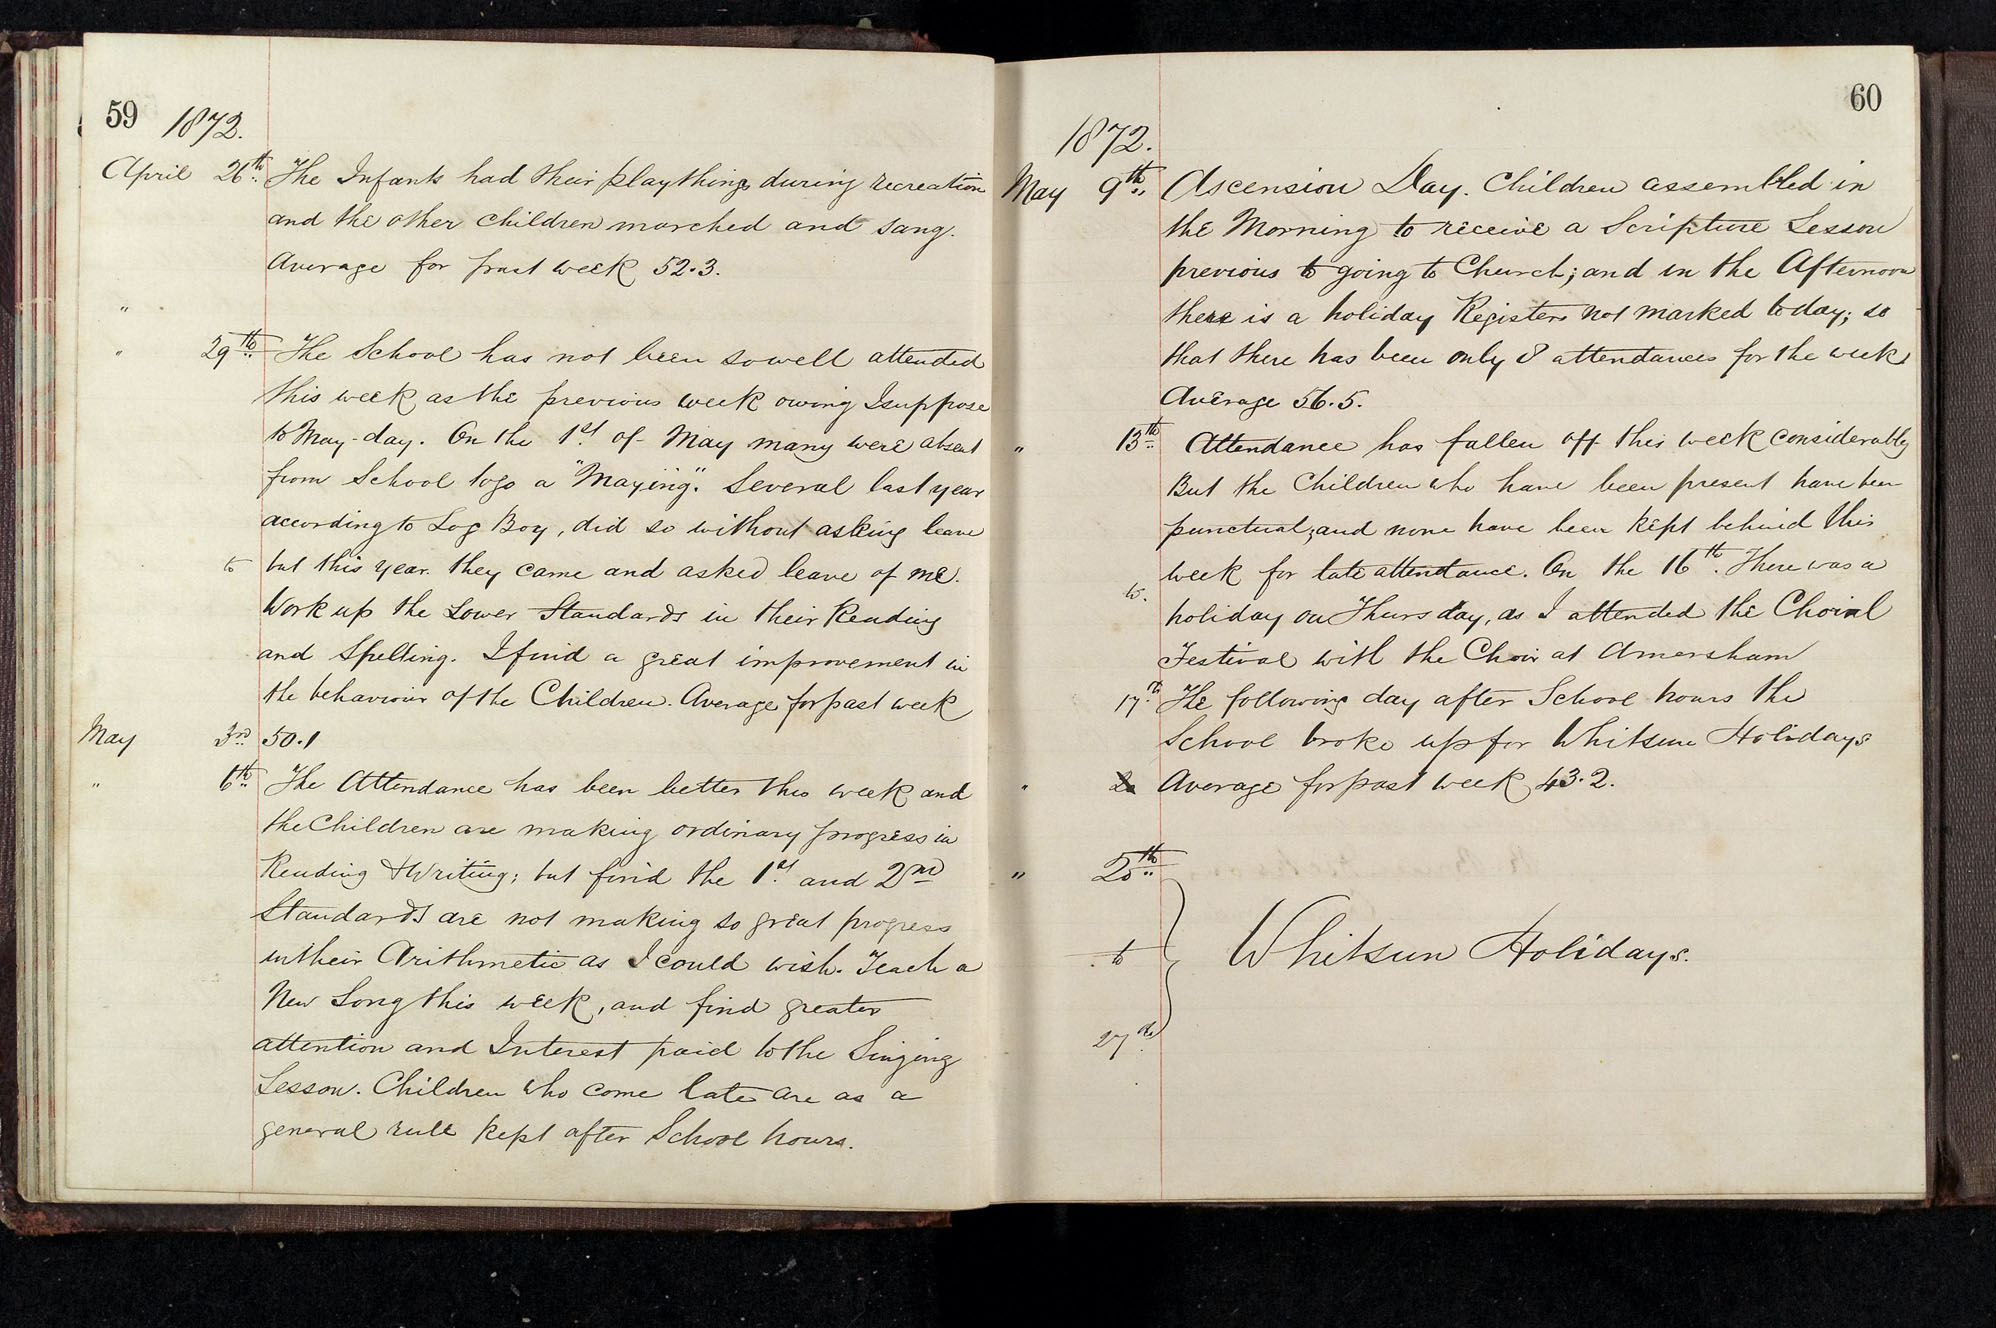 59 1872.
April 26th The Infants had their playthings during recreation
and the other children marched and sang.
Average for past week 52.3.
"
" 29th The School has not been so well attended
this week as the previous week owing I suppose
to May-day. On the 1st of May many were absent
from School to go a "Maying". Several last year
according to Log Boy, did so without asking leave
to but this year they came and asked leave of me.
Work up the Lower Standards in their Reading
and Spelling. I find a great improvement in
the behaviour of the Children. Average for past week
May 3rd 50.1
" 6th The Attendance has been better this week and
the Children are making ordinary progress in
Reading & Writing; but find the 1st and 2nd
Standards are not making so great progress
in their Arithmetic as I could wish. Teach a
New Song this week, and find greater
attention and Interest paid to the Singing
Lesson. Children who come late are as a
general rule kept after School hours.
60
1872.
May 9th Ascension Day. Children assembled in
the Morning to receive a Scripture Lesson
previous to going to Church; and in the Afternoon
there is a holiday Registers not marked today; so
that there has been only 8 attendances for the week
Average 56.5.
" 13th Attendance has fallen off this week considerably
But the Children who have been present have been
punctual; and none have been kept behind this
week for late attendance. On the 16th. There was a
to. holiday on Thursday, as I attended the Choral
Festival with the Choir at Amersham
17th The following day after School hours the
School broke up for Whitsun Holidays
" Average for past week 43.2.
" 20th
to Whitsun Holidays.
27th